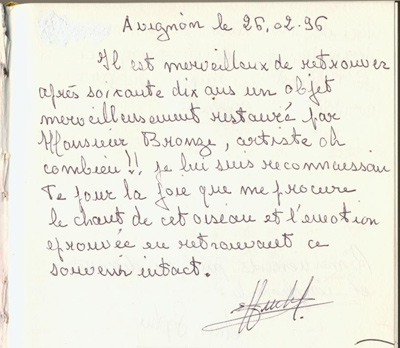 Avignon le 26.02.96
Il est merveilleux de retrouver
après soixante dix ans un objet
merveilleusement restauré par
Monsieur Bronzi, artiste oh
combien!! je lui suis reconnaissan
te pour la joie que me procure
le chant de cet oiseau et l'emotion
eprouvée en retrouvant ce
souvenir intact.